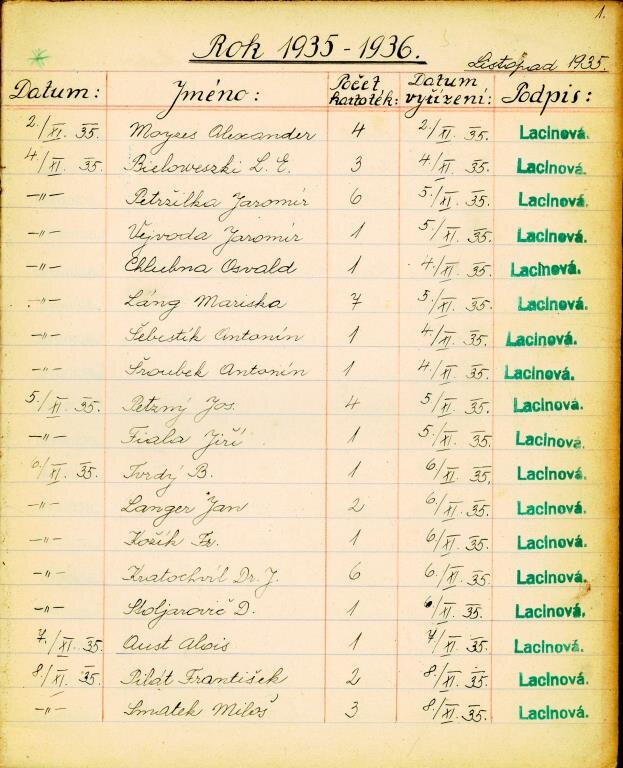 1.
Rok 1935-1936.
Listopad 1935.
Datum: Jméno: Počet kartoték: Datum vyřízení: Podpis:
2./XI. 35. Moyzes Alexander 4 2./XI. 35. Lacinová.
4./XI. 35. Bieloweszki L. E. 3 4./XI. 35. Lacinová.
—"— Petržilka Jaromír 6 5./XI. 35. Lacinová.
—"— Vejvoda Jaromír 1 5./XI. 35. Lacinová.
—"— Chlubna Osvald 1 4./XI. 35. Lacinová.
—"— Láng Mariska 7 5./XI. 35. Lacinová.
—"— Šebestík Antonín 1 4./XI. 35. Lacinová.
—"— Šroubek Antonín 1 4./XI. 35. Lacinová.
5./XI. 35. Petrný Jos. 4 5./XI. 35. Lacinová.
—"— Fiala Jiří 1 5./XI. 35. Lacinová.
6./XI. 35. Tvrdý B. 1 6./XI. 35. Lacinová.
—"— Langer Jan 2 6./XI. 35. Lacinová.
—"— Kožík Fr. 1 6./XI. 35. Lacinová.
—"— Kratochvíl Dr. J. 6 6./XI. 35. Lacinová.
—"— Stoljarovič D. 1 6/XI. 35. Lacinová.
7./XI. 35. Aust Alois 1 7/XI. 35. Lacinová.
8./XI. 35. Pilát František 2 8/XI. 35. Lacinová.
—"— Smatek Miloš 3 8/XI. 35. Lacinová.